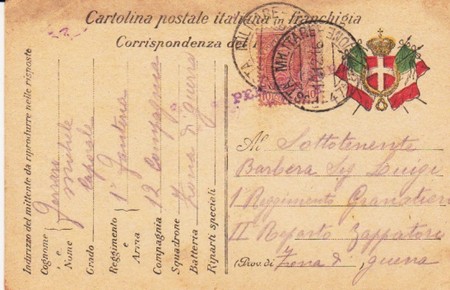 Cartolina postale italiana in franchigia
Corrispondenza del
POSTA MILITARE
Indirizzo del mittente da riprodurre nelle risposte
Cognome
e
Nome Michele
Grado Caporale
Reggimento 1° Fanteria
e
Arma
Compagnia 12 Compagnia
Squadrone
Batteria Zona di guerra
Riparti speciali
Al Sottotenente
Barbera Sig Luigi
1 Reggimento Granatieri
II Reparto Zappatori
(Prov. di Zona di guerra